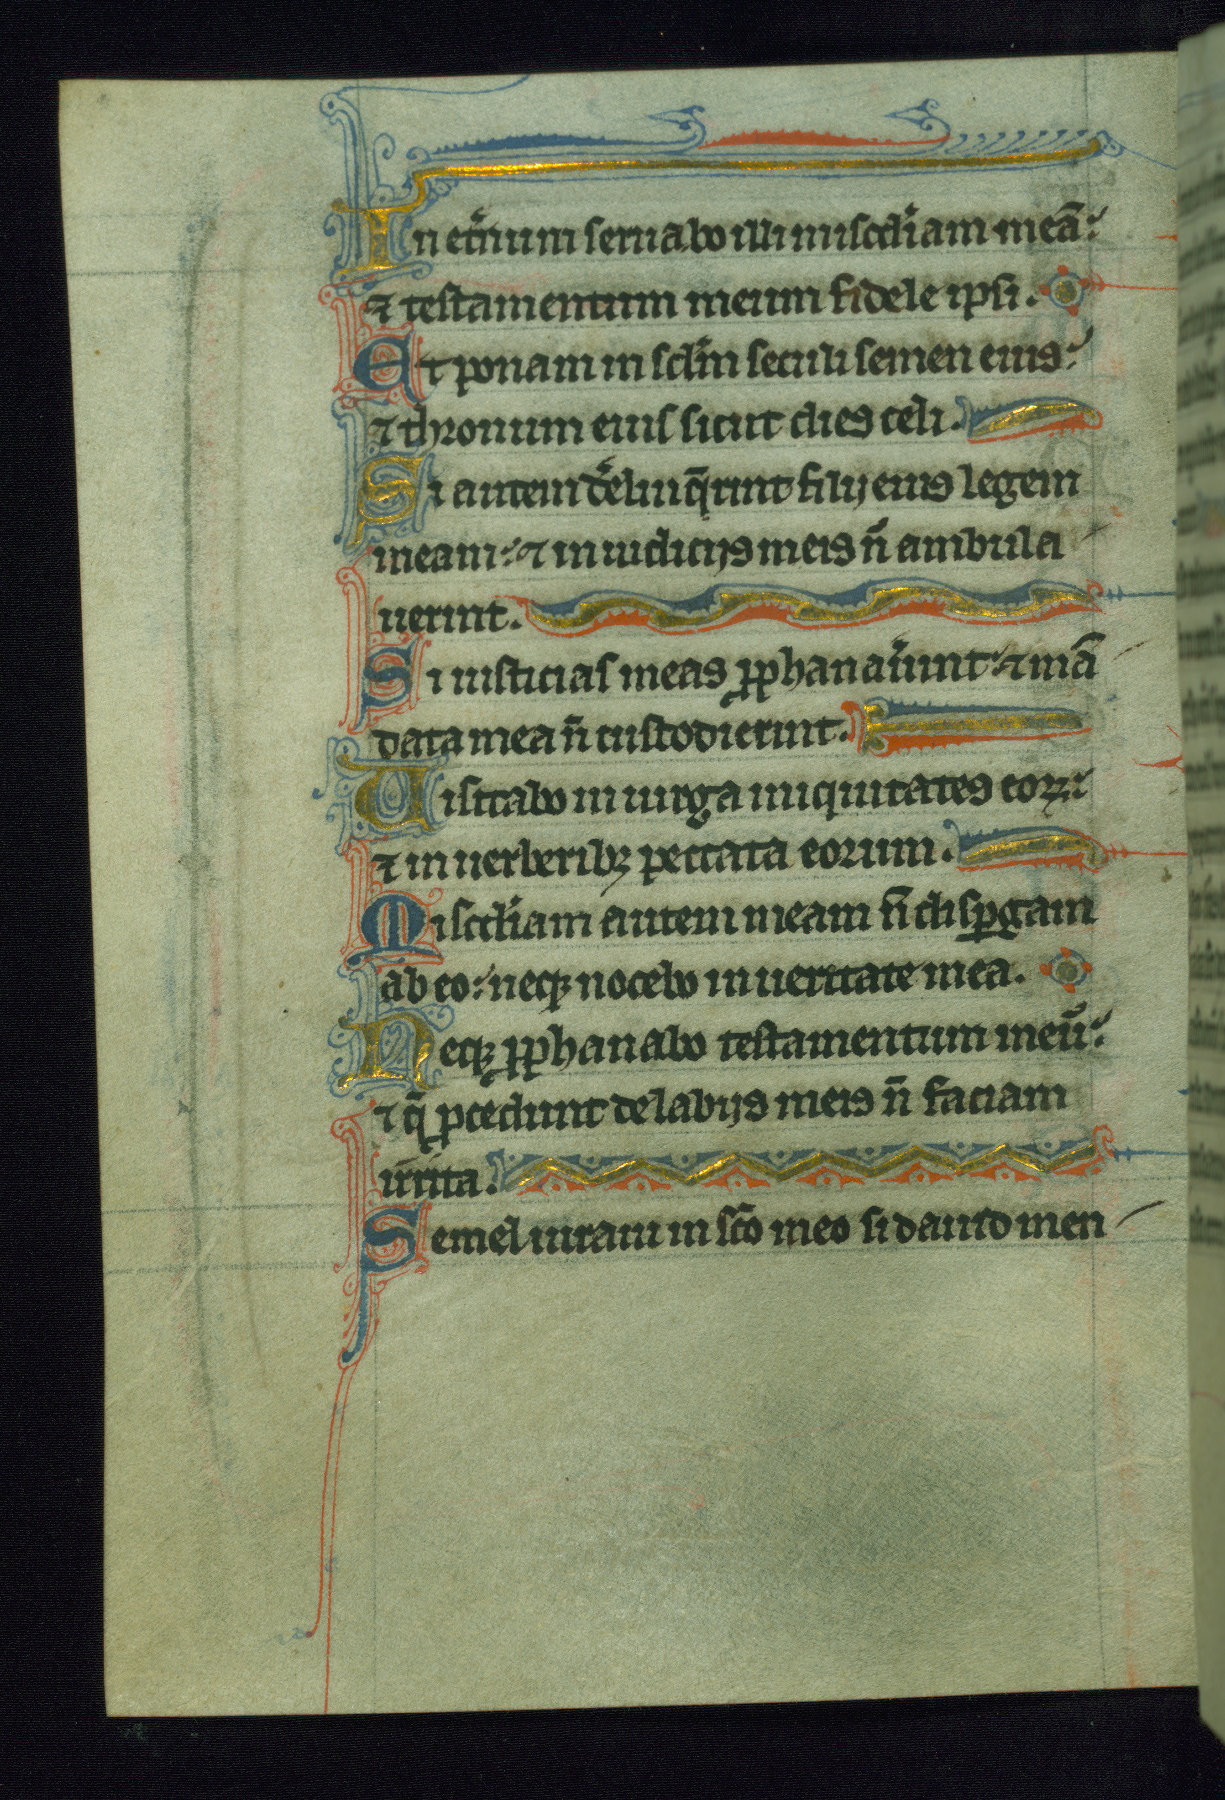 In et͛num seruabo illi misc̄diam meā:
⁊ testamentum meum fidele ipsi.
Et ponam in sc̄lm seculi semen eius:
⁊ thronum eius sicut dies celi.
Si autem d͛elinq̄rint filij eius legem
meam: ⁊ in iudicijs meis n̄ ambula
uerint.
Si iusticias meas ꝓphanau͛int: ⁊ mā
data mea n̄ custodierint.
Uisitabo in uirga iniquitates eoꝝ:
⁊ in uerberibꝫ peccata eorum.
Misc̄diam autem meam n̄ dispgam
ab eo: neqꝫ nocebo in ueritate mea.
Neqꝫ ꝓphanabo testamentum meū:
⁊ q̄ ꝓcedunt de labijs meis n̄ faciam
irrita.
Semel iuraui in sc̄o meo si dauid men